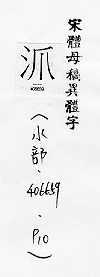 宋體母稿異體字
406659
（水部．406659．P10）